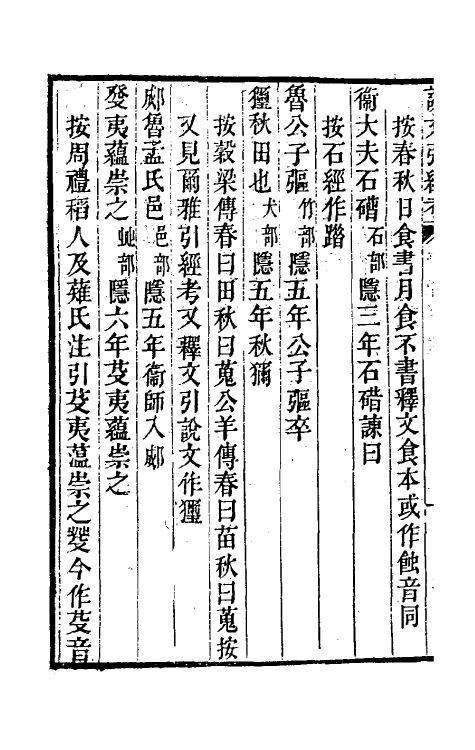 按春秋日食書月食不書釋文食本或作蝕音同
衞大夫石碏石部隱三年石碏諫曰
按石經作踖
魯公子彄竹部隱五年公子彄卒
玃秋田也犬部隱五年秋獮
按穀梁傳春曰田秋曰蒐公羊傳春曰苗秋曰蒐按
又見爾雅引經考又釋文引說文作玃
郕魯孟氏邑邑部隱五年衞師入郕
發夷蘊崇之艸部隱六年芟夷蘊崇之
按周禮稻人及薙氏注引芟夷薀崇之發今作芟音